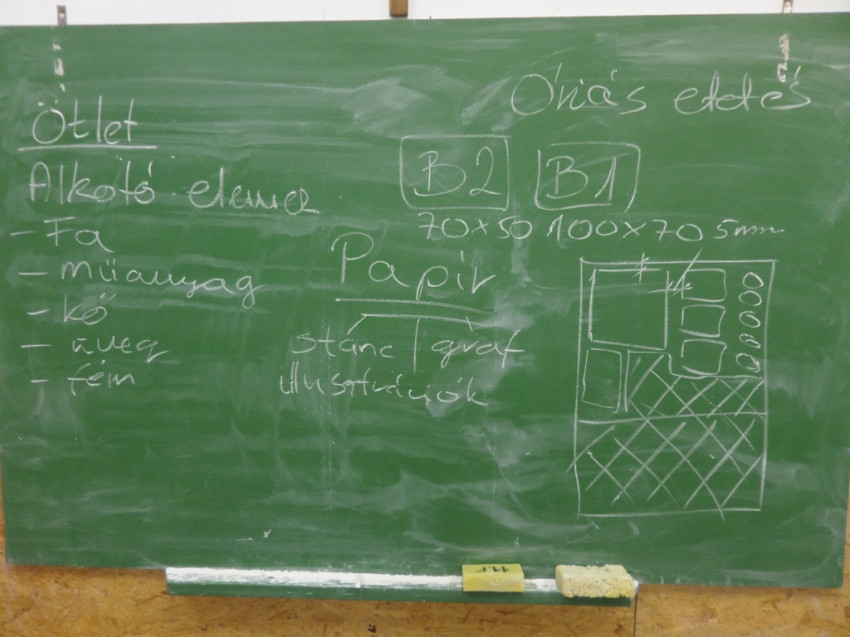 Ötlet
Alkotó eleme
- Fa
- műanyag
- kő
- üveg
- fém
Óriás
B2 B1
70×50 100×70 5mm
Papír
stanc graf
illusztrációk